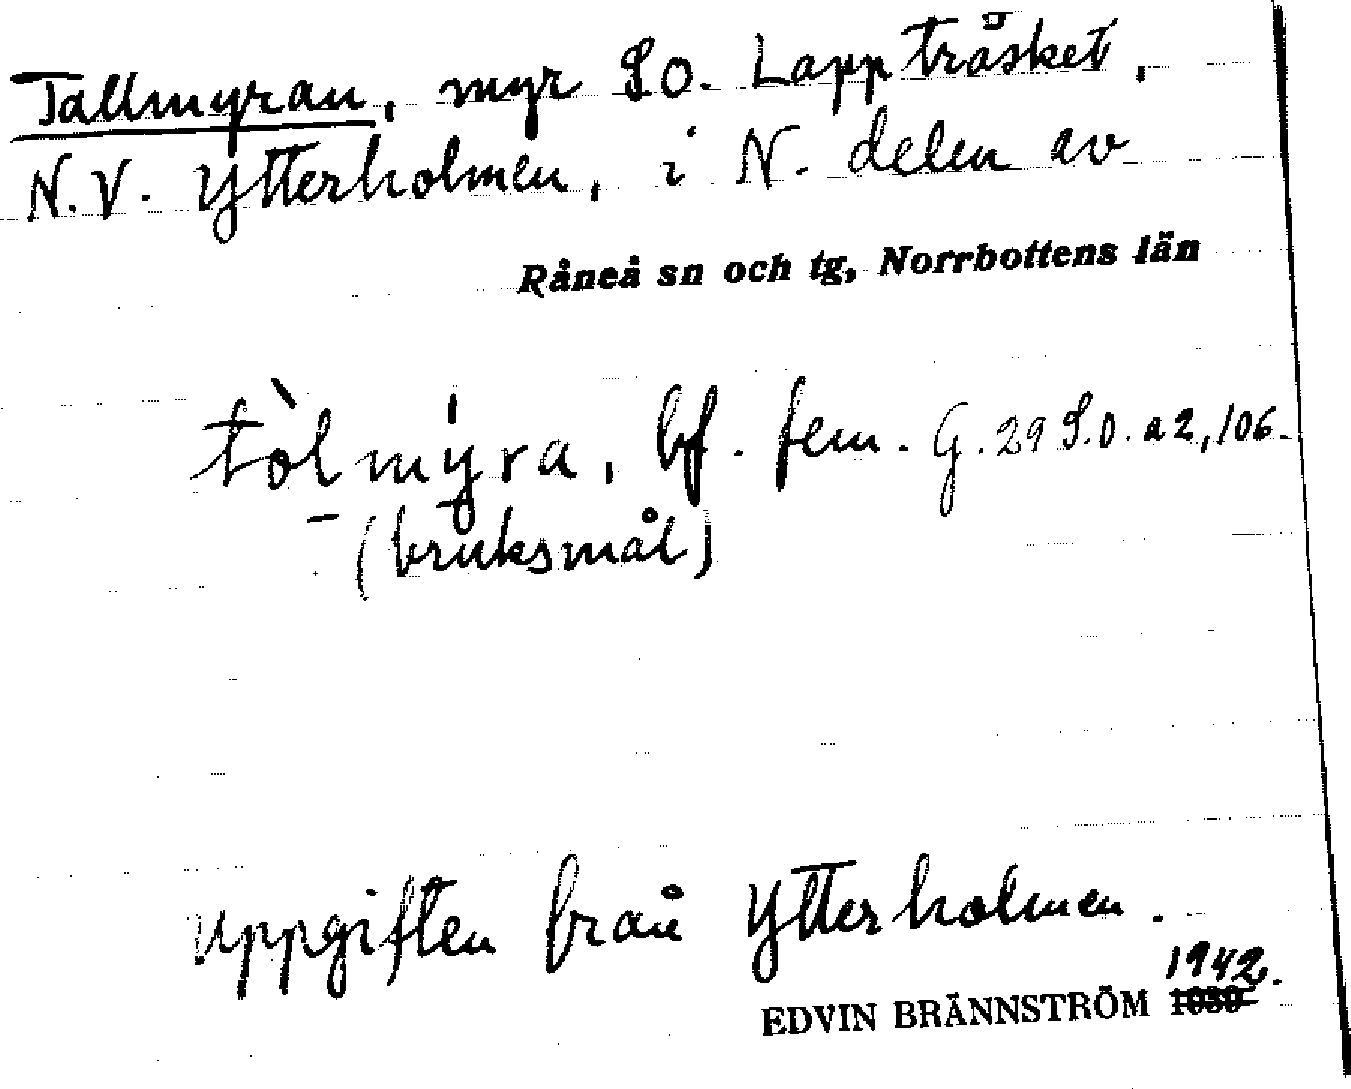 Tallmyran, myr SO. Lappträsket,
N.V. Ytterholmen, i N. delen av
Råneå sn och tg, Norrbottens län
tòlmyra, bf. fem. G. 29 S.O. a2, 106.
(bruksmål)
Uppgiften från Ytterholmen.
1942.
EDVIN BRÄNNSTRÖM 1930